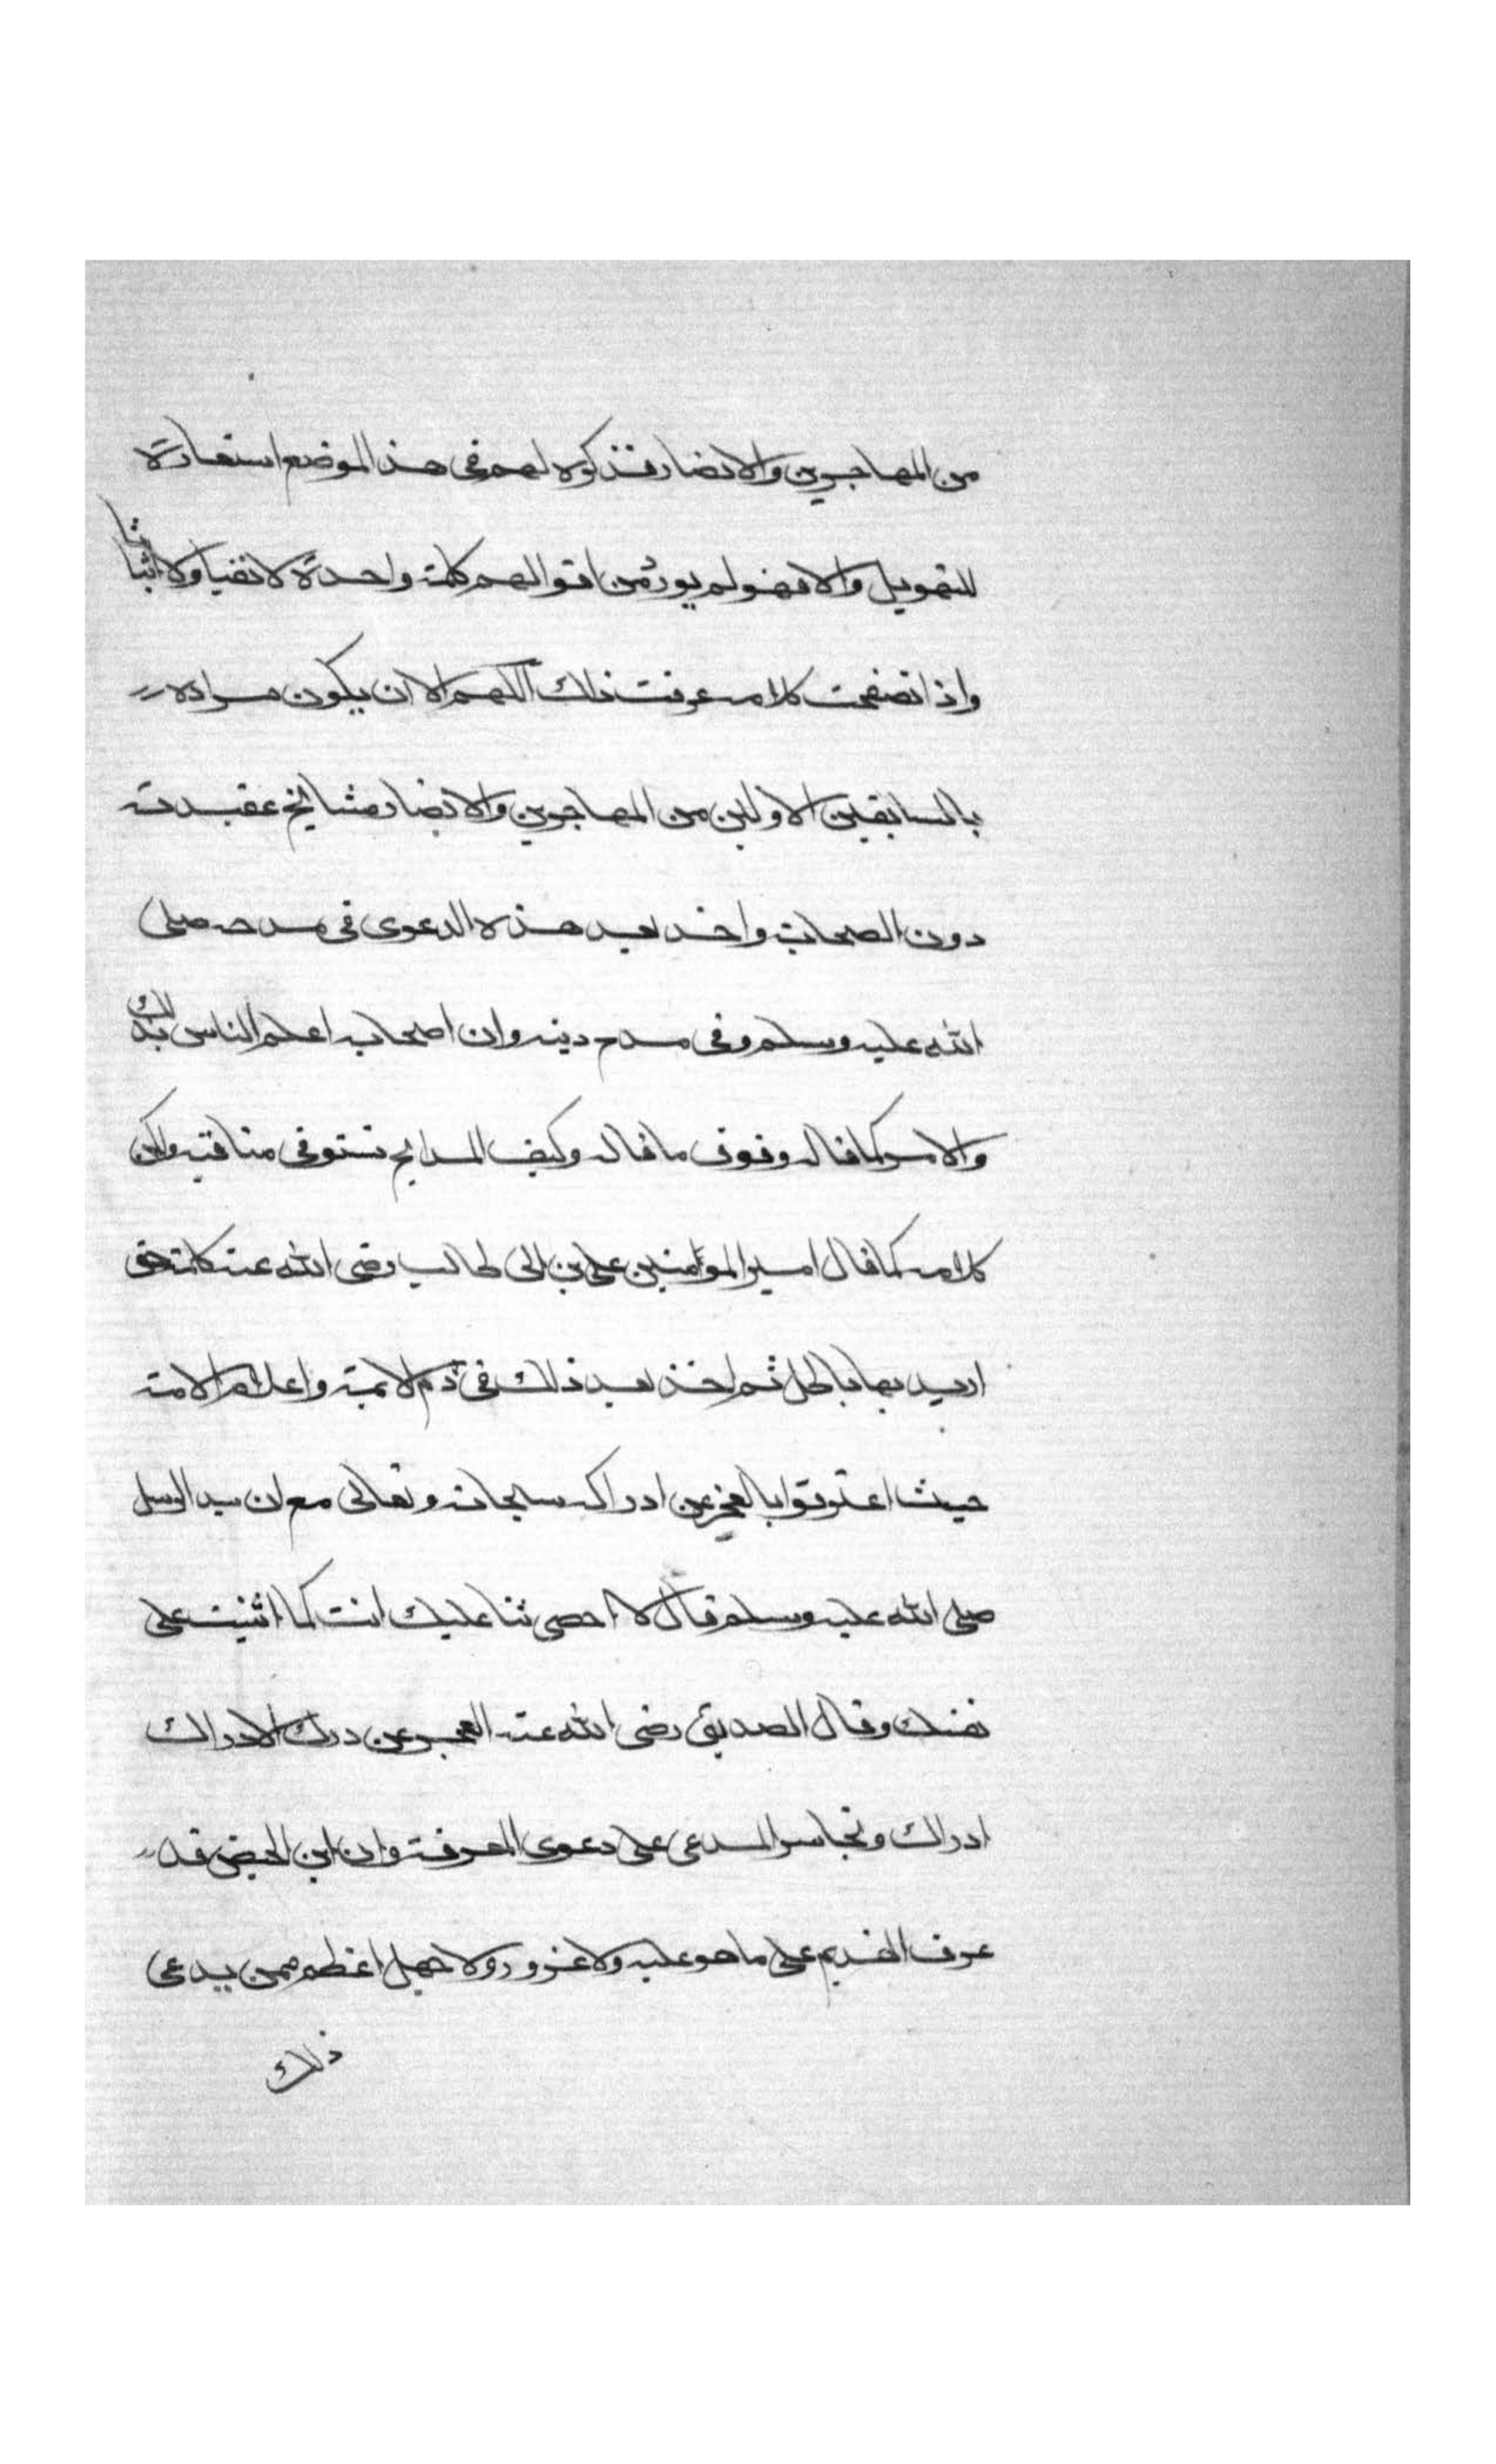 من المهاجرين والانصار فذكره لهم في هذا الموضع استعارة
للتهويل والا فهو لم يورد من اقوالهم كلمة واحدة لا نفيا ولا اثباتا
واذا تصفحت كلامه عرفت ذلك اللهم الا ان يكون مراده
بالسابقين الاولين من المهاجرين والانصار مشايخ عقيدته
دون الصحابة واخذ بعد هذه الدعوى في مدحه صلى
الله عليه وسلم وفي مدح دينه وان اصحابه اعلم الناس بذلك
والامر كما قاله وفوق ما قاله وكيف المدايح تستوفي مناقبه ولكن
كلامه كما قال امير المؤمنين علي بن ابي طالب رضي الله عنه كلمة حق
اريد بها باطل ثم اخذ بعد ذلك في ذم الايمة واعلام الامة
حيث اعترفوا بالعجز عن ادراكه سبحانه وتعالى مع ان سيد الرسل
صلى الله عليه وسلم قال لا احصي ثنا عليك انت كما اثنيت على
نفسك وقال الصديق رضي الله عنه العجز عن درك الادراك
ادراك وتجاسر المدعي على دعوى المعرفة وان ابن الحيض قد
عرف القديم على ما هو عليه ولا غرور ولا جهل اعظم ممن يدعي
ذلك